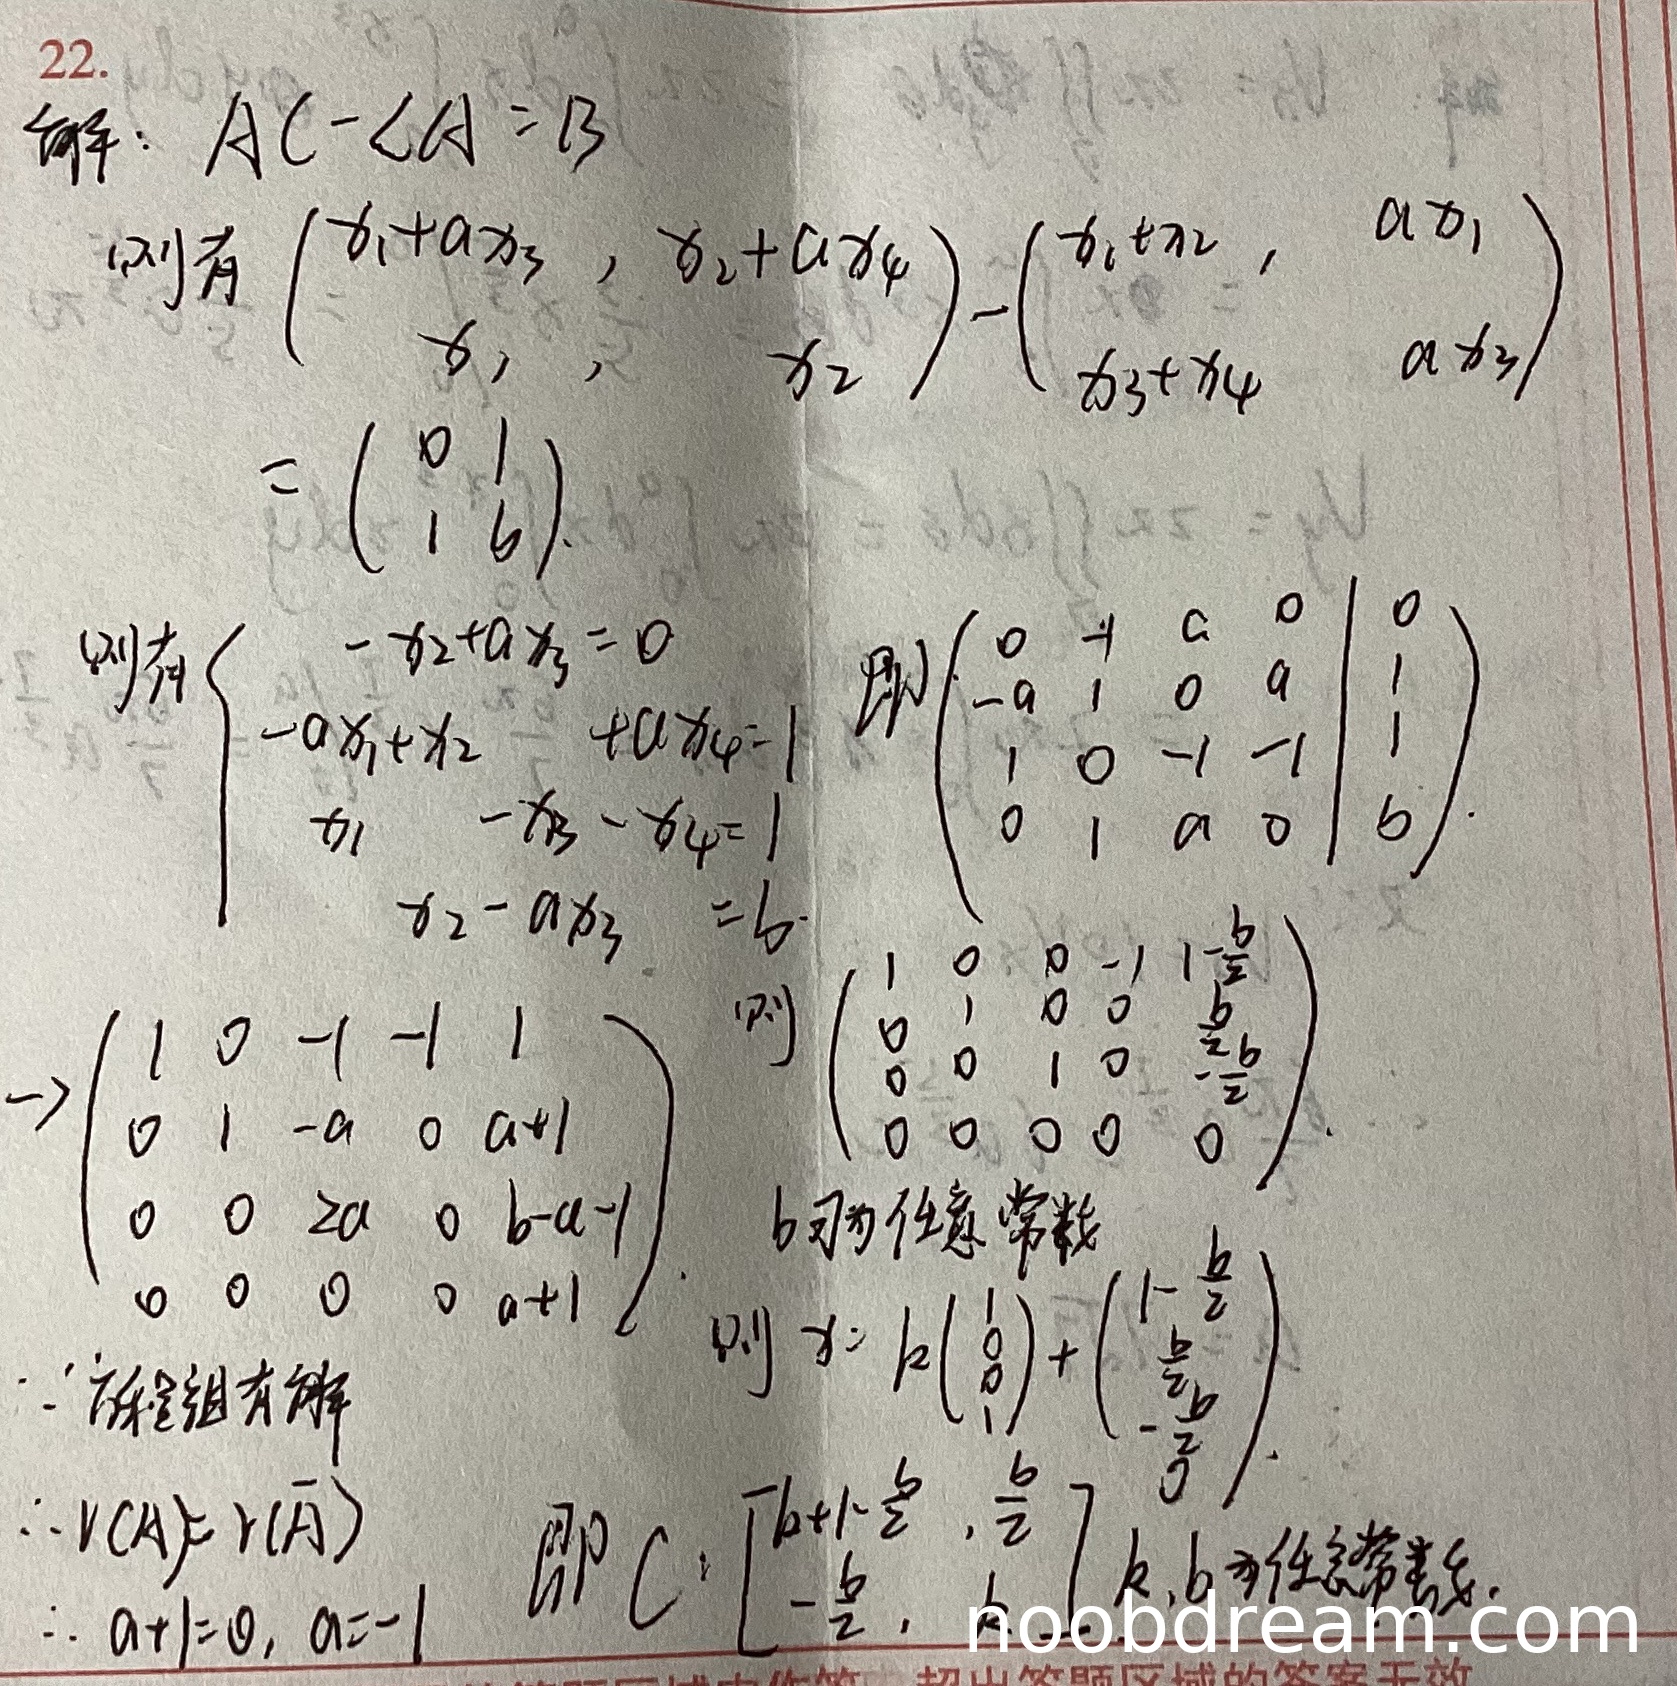 22.
解: AC-CA=B
则有 (x₁+ax₃, x₂+ax₄
x₁, x₂) - (x₁+x₂, ax₁
x₃+x₄ ax₃)
= (0 1
1 b).
则有 { -x₂+ax₃=0
-ax₁+x₂ +ax₄=1
x₁ -x₃-x₄=1
x₂-ax₃ =b.
即 (0 -1 a 0 | 0
-a 1 0 a | 1
1 0 -1 -1 | 1
0 1 a 0 | b).
→ (1 0 -1 -1 1
0 1 -a 0 a+1
0 0 2a 0 b-a-1
0 0 0 0 a+1).
∵方程组有解
∴r(A)=r(Ā)
∴a+1=0, a=-1
则 (1 0 0 -1 1-b/2
0 1 0 0 b/2
0 0 1 0 -b/2
0 0 0 0 0).
b可为任意常数
则 x= k(1
0
0
1) + (1-b/2
b/2
-b/2
0).
即 C: [k+1-b/2, b/2
-b/2, k] k,b为任意常数.
noobdream.com